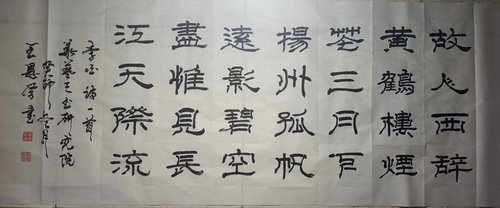 故人西辭
黃鶴樓煙
花三月下
楊州孤帆
遠影碧空
盡惟見長
江天際流
李白詩一首
研究院
癸卯
王恩 書